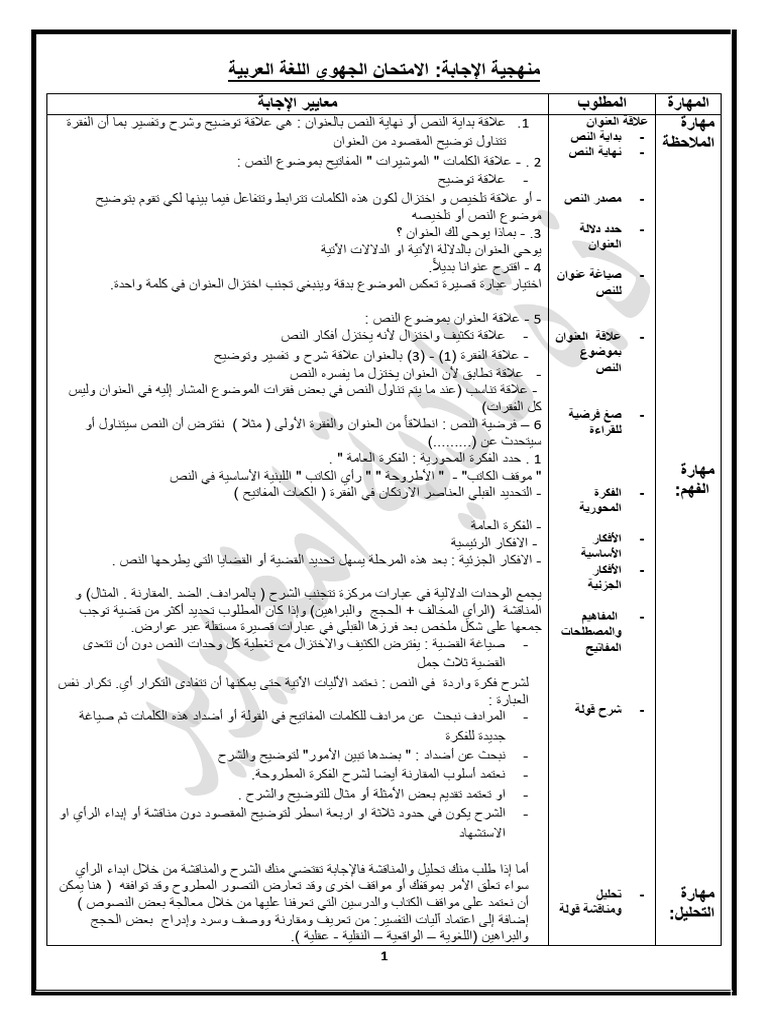 منهجية الإجابة: الامتحان الجهوي اللغة العربية
المهارة
المطلوب
معايير الإجابة
مهارة
الملاحظة
علاقة العنوان
- بداية النص
- نهاية النص
- مصدر النص
- حدد دلالة
العنوان
- صياغة عنوان
للنص
- علاقة العنوان
بموضوع
النص
- صغ فرضية
للقراءة
1. علاقة بداية النص أو نهاية النص بالعنوان : هي علاقة توضيح وشرح وتفسير بما أن الفقرة
تتناول توضيح المقصود من العنوان
2 . - علاقة الكلمات " الموشيرات " المفاتيح بموضوع النص :
- علاقة توضيح
- أو علاقة تلخيص و اختزال لكون هذه الكلمات تترابط وتتفاعل فيما بينها لكي تقوم بتوضيح
موضوع النص أو تلخيصه
3. - بماذا يوحي لك العنوان ؟
يوحي العنوان بالدلالة الآتية او الدلالات الآتية
4 - اقترح عنوانا بديلاً.
اختيار عبارة قصيرة تعكس الموضوع بدقة وينبغي تجنب اختزال العنوان في كلمة واحدة.
5 - علاقة العنوان بموضوع النص :
- علاقة تكثيف واختزال لأنه يختزل أفكار النص
- علاقة الفقرة (1) - (3) بالعنوان علاقة شرح و تفسير وتوضيح
- علاقة تطابق لأن العنوان يختزل ما يفسره النص
- علاقة تناسب (عند ما يتم تناول النص في بعض فقرات الموضوع المشار إليه في العنوان وليس
كل الفقرات)
6 – فرضية النص : انطلاقاً من العنوان والفقرة الأولى ( مثلا ) نفترض أن النص سيتناول أو
سيتحدث عن (.........)
مهارة
الفهم:
- الفكرة
المحورية
- الأفكار
الأساسية
- الأفكار
الجزئية
- المفاهيم
والمصطلحات
المفاتيح
- شرح قولة
1 . حدد الفكرة المحورية : الفكرة العامة " .
" موقف الكاتب" - " الأطروحة " " رأي الكاتب " اللبنية الأساسية في النص
- التحديد القبلي العناصر الارتكان في الفقرة ( الكمات المفاتيح )
- الفكرة العامة
- الافكار الرئيسية
- الافكار الجزئية : بعد هذه المرحلة يسهل تحديد القضية أو القضايا التي يطرحها النص .
يجمع الوحدات الدلالية في عبارات مركزة تتجنب الشرح ( بالمرادف. الضد .المقارنة . المثال) و
المناقشة (الرأي المخالف + الحجج والبراهين) وإذا كان المطلوب تحديد أكثر من قضية توجب
جمعها على شكل ملخص بعد فرزها القبلي في عبارات قصيرة مستقلة عبر عوارض.
- صياغة القضية : يفترض الكثيف والاختزال مع تغطية كل وحدات النص دون أن تتعدى
القضية ثلاث جمل
لشرح فكرة واردة في النص : نعتمد الآليات الآتية حتى يمكنها أن تتفادى التكرار أي. تكرار نفس
العبارة :
- المرادف نبحث عن مرادف للكلمات المفاتيح في القولة أو أضداد هذه الكلمات ثم صياغة
جديدة للفكرة
- نبحث عن أضداد : " بضدها تبين الأمور" لتوضيح والشرح
- نعتمد أسلوب المقارنة أيضا لشرح الفكرة المطروحة.
- او تعتمد تقديم بعض الأمثلة أو مثال للتوضيح والشرح .
- الشرح يكون في حدود ثلاثة او اربعة اسطر لتوضيح المقصود دون مناقشة أو إبداء الرأي او
الاستشهاد
مهارة
التحليل:
- تحليل
ومناقشة قولة
أما إذا طلب منك تحليل والمناقشة فالإجابة تقتضي منك الشرح والمناقشة من خلال ابداء الرأي
سواء تعلق الأمر بموقفك أو مواقف اخرى وقد تعارض التصور المطروح وقد توافقه ( هنا يمكن
أن نعتمد على مواقف الكتاب والدرسين التي تعرفنا عليها من خلال معالجة بعض النصوص )
إضافة إلى اعتماد آليات التفسير: من تعريف ومقارنة ووصف وسرد وإدراج بعض الحجج
والبراهين (اللغوية – الواقعية – النقلية - عقلية ).
1